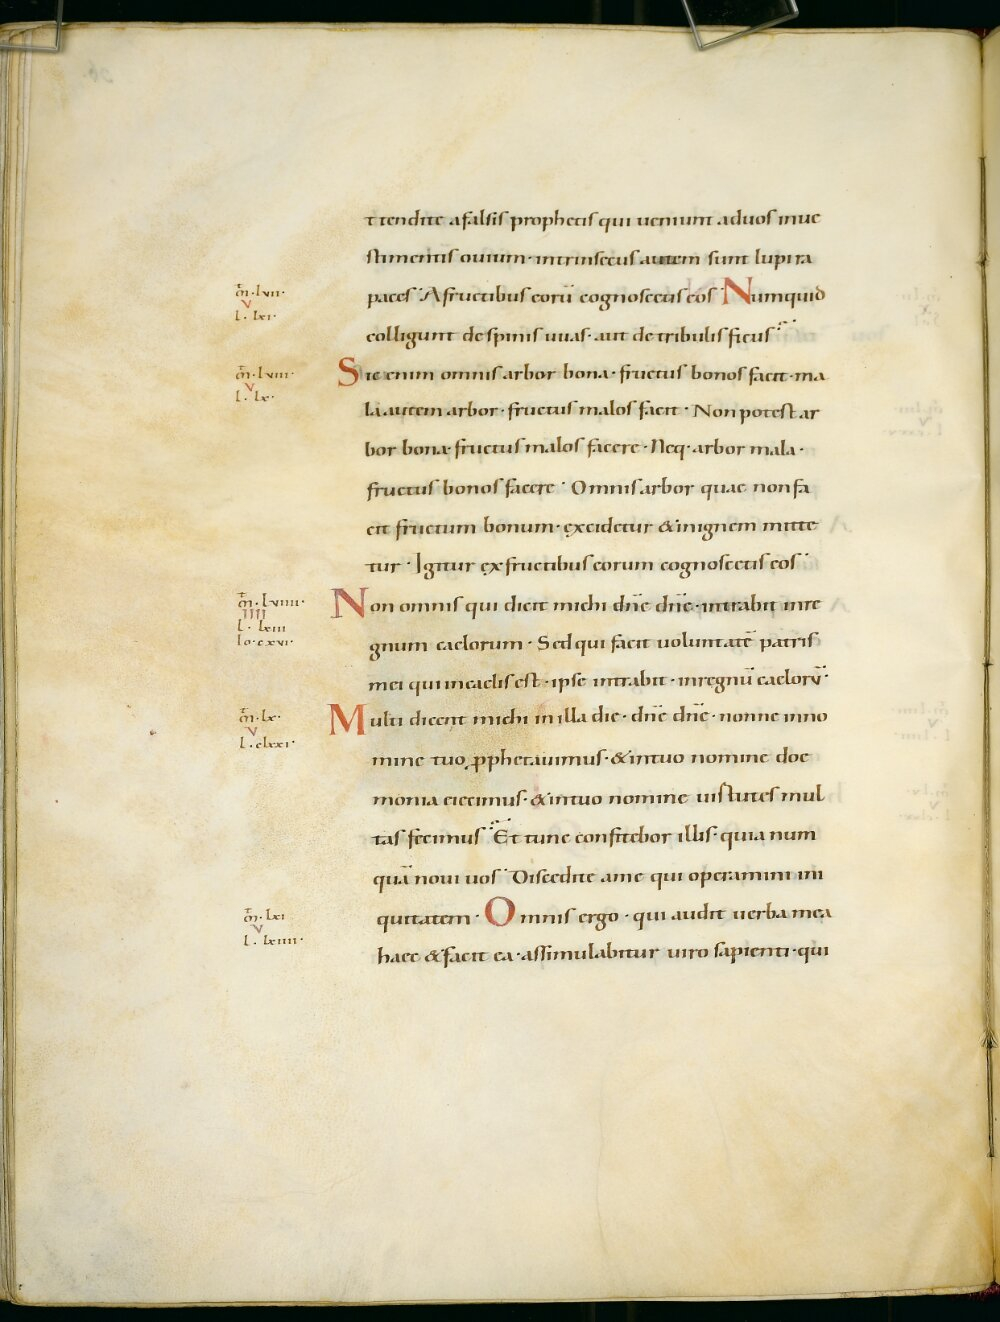 ttendite afalsis prophetis qui ueniunt aduos inue
stimentis ouium · intrinsecus autem sunt lupi ra
m̄ · lvii ·
v
l · lxi ·
paces · A fructibus eorū cognoscetis eos · Numquid
colligunt despinis uuas · aut detribulis ficus ·
m̄ · lviii ·
v
l · lx ·
Sic enim omnis arbor bona · fructus bonos facit · ma
la autem arbor · fructus malos facit · Non potest ar
bor bona · fructus malos facere · Neq · arbor mala ·
fructus bonos facere · Omnis arbor quae non fa
cit fructum bonum · excidetur & inignem mitte
tur · Igitur ex fructibus eorum cognoscetis eos ·
m̄ · lviiii ·
IIII
l · lxiii
Io · cxvi ·
Non omnis qui dicit michi dn̄e dn̄e · intrabit inre
gnum caelorum · Sed qui facit uoluntatē patris
mei qui incaelis est · ipse intrabit · inregnū caelorū ·
m̄ · lx ·
v
l · clxxi ·
Multi dicent michi in illa die · dn̄e dn̄e · nonne inno
mine tuo ꝓphetauimus · & intuo nomine doe
monia eiecimus · & intuo nomine uirtutes mul
tas fecimus · Et tunc confitebor illis · quia num
quā noui uos · Discedite ame qui operamini ini
m̄ · lxi
v
l · lxiiii ·
quitatem · Omnis ergo · qui audit uerba mea
haec & facit ea · assimulabitur uiro sapienti · qui